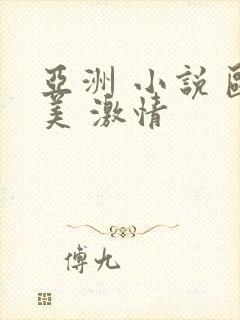 亞洲 小說 歐
美 激情
傅九